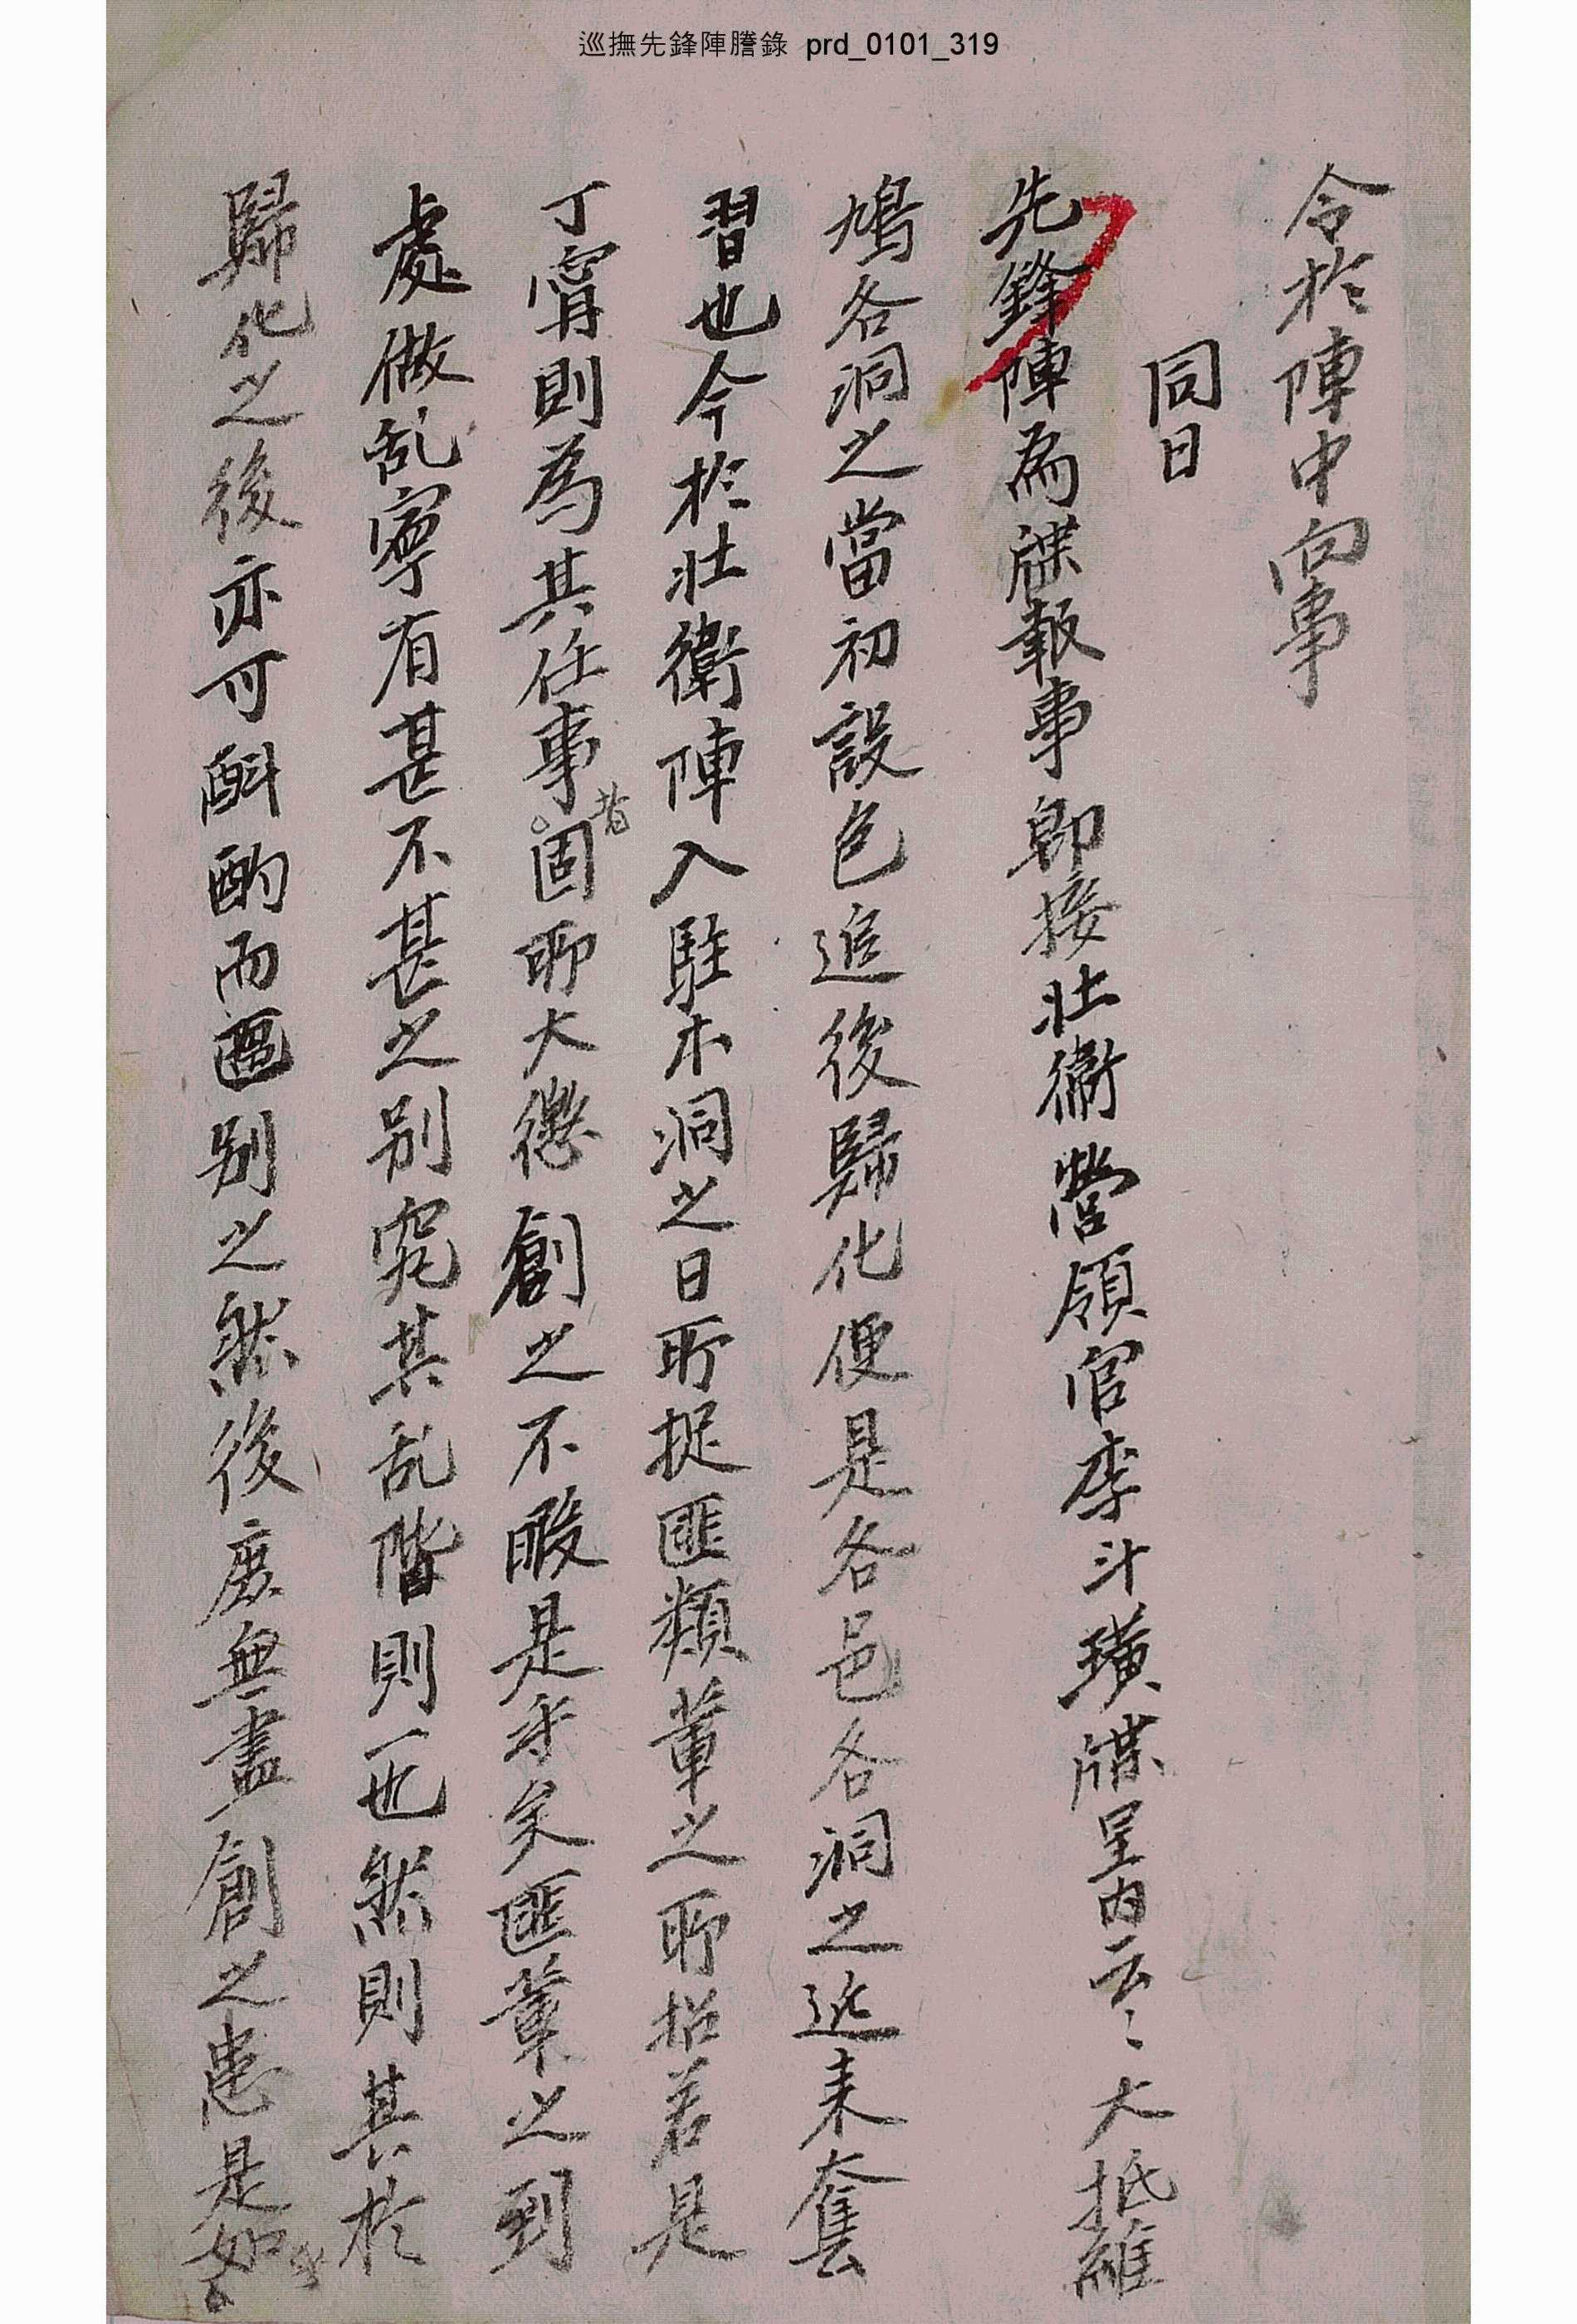 巡撫先鋒陣謄錄 prd_0101_319
令於陣中向事
同日
先鋒陣爲牒報事卽接壯衛營領官李斗璜牒呈內云〻大抵維
鳩各洞之當初設包追後歸化便是各邑各洞之近來奪
習也今於壯衛陣入駐本洞之日所捉匪類輩之所招若是
丁寗則爲其任事者固所大懲創之不暇是乎矣匪輩之到
處做乱寧有甚不甚之别究其乱階則一也然則其於
歸化之後亦可斟酌而區别之然後庶無盡創之患是如乎